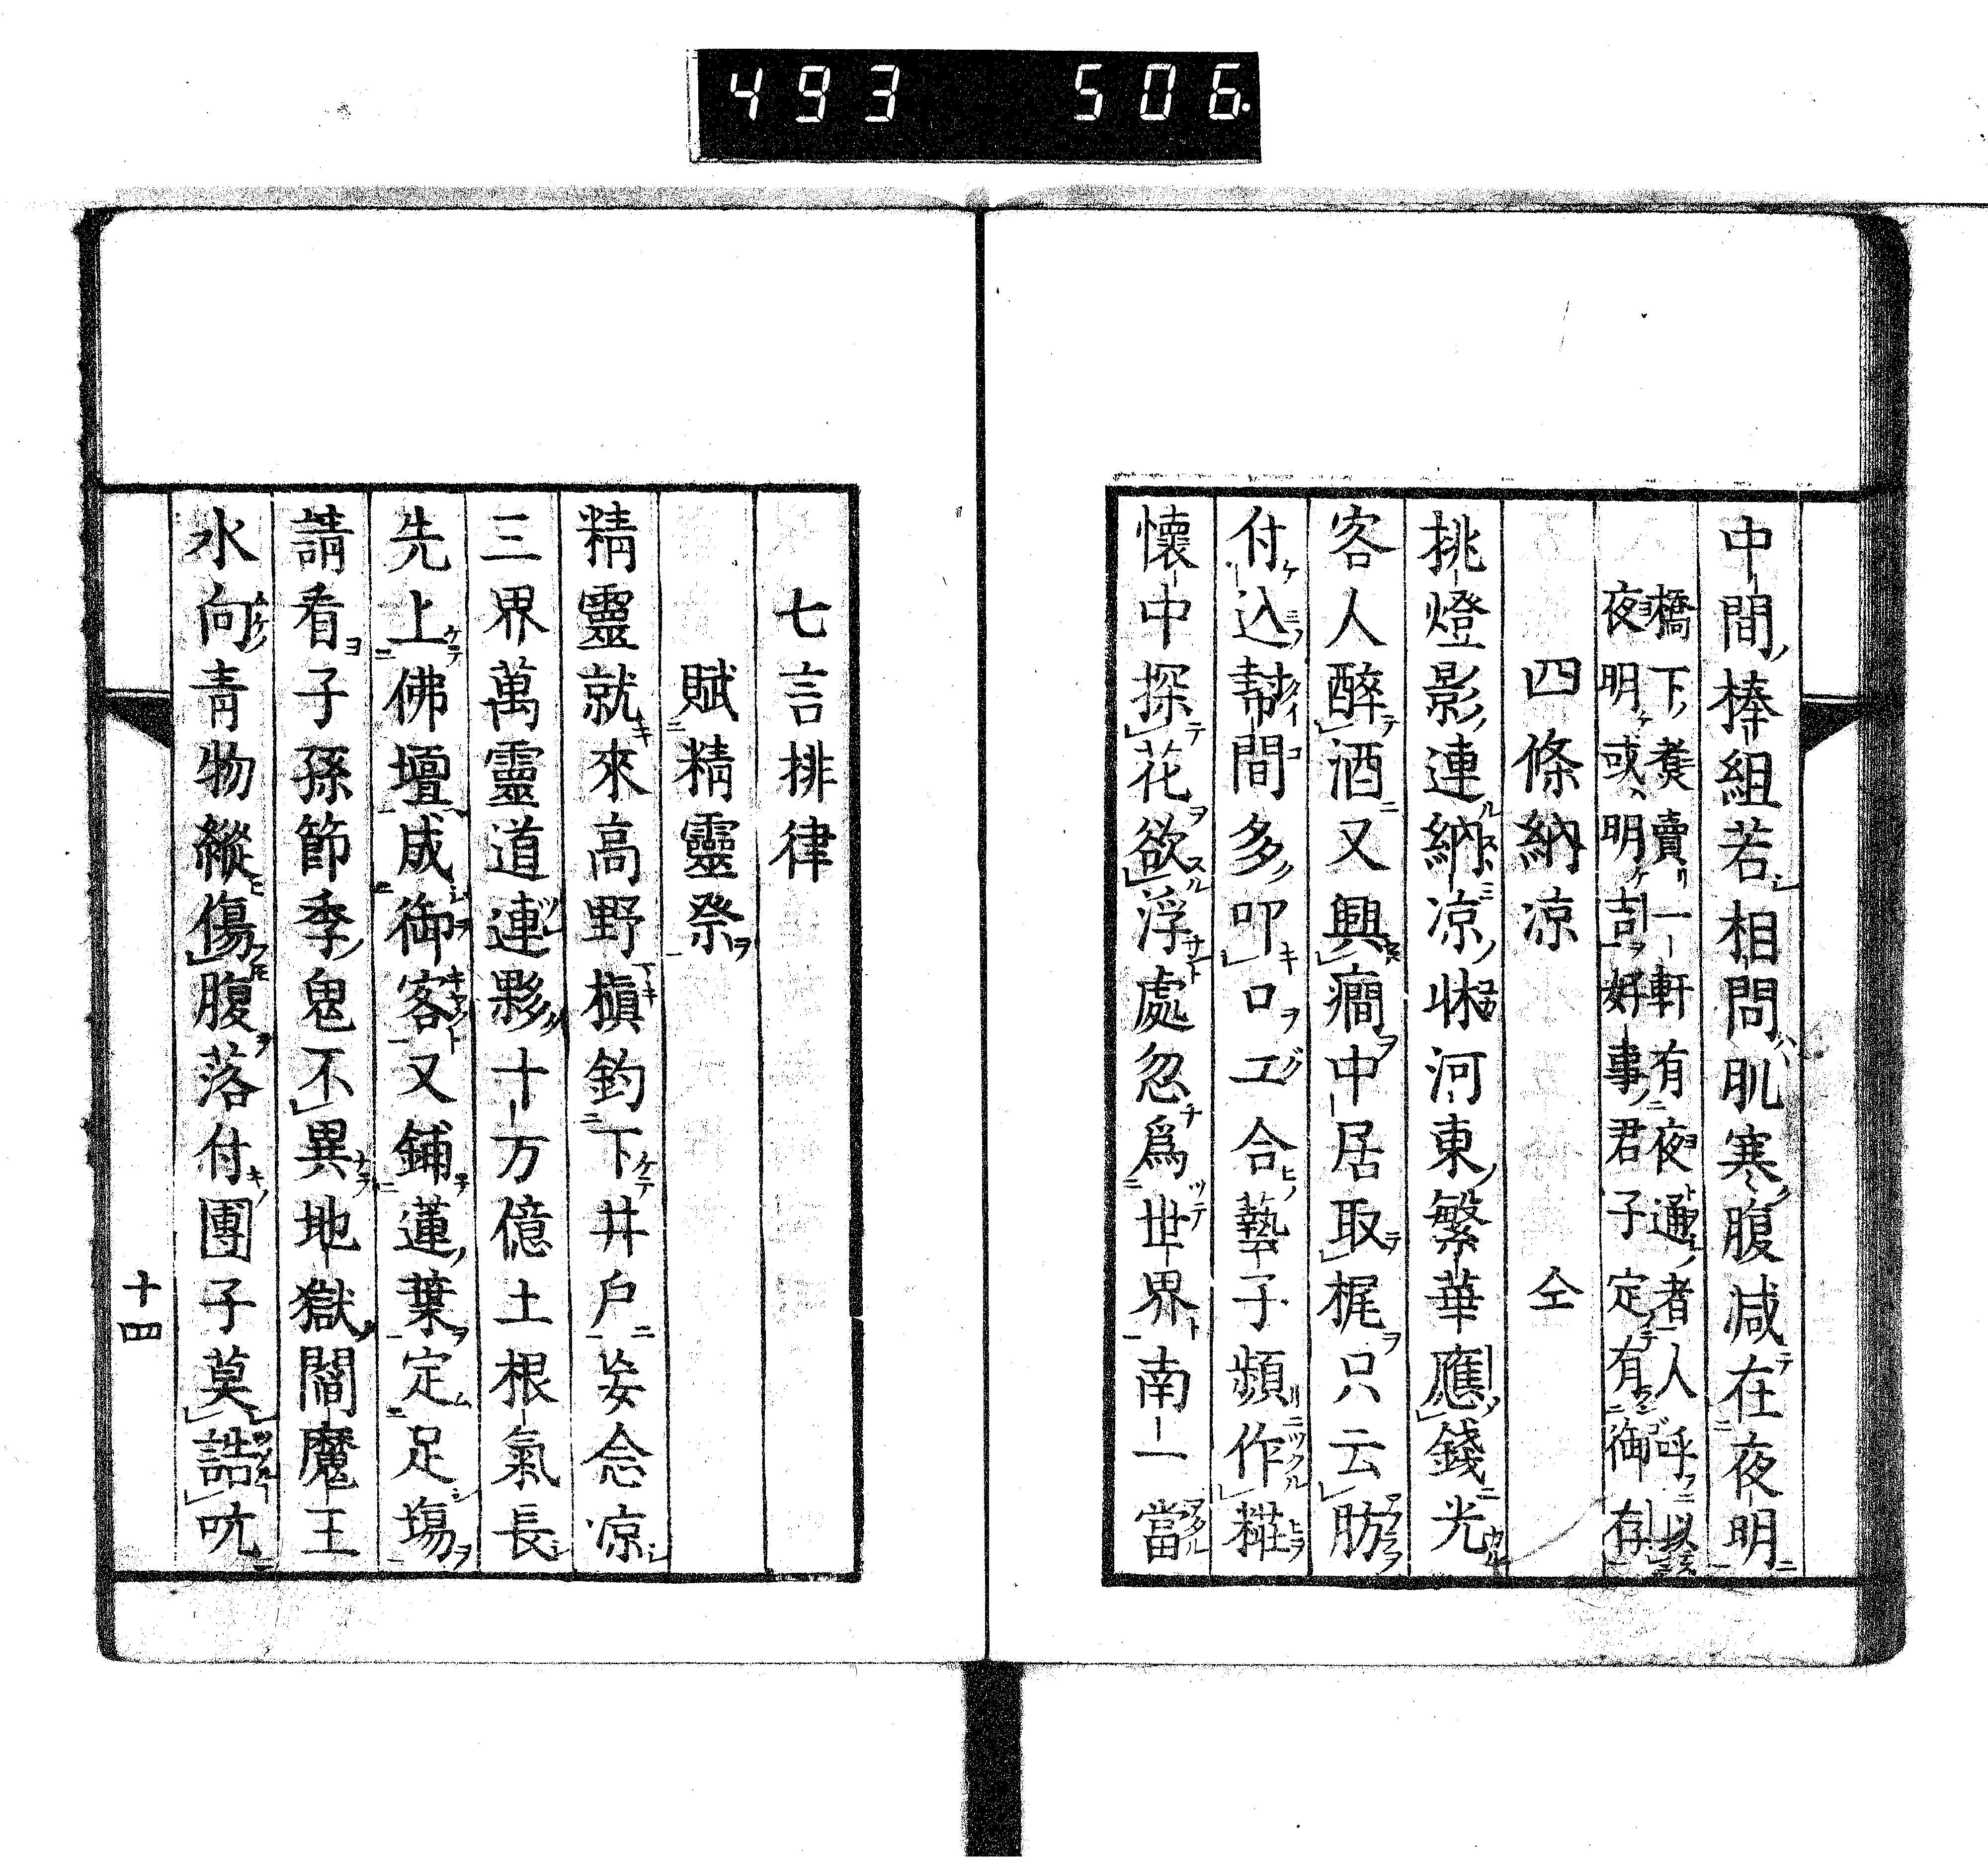 493 506.
中間捧組若相問肌寒腹減在夜明
橋下養賣一軒有夜通者人呼以
夜明或明吉好事君子定有御存
四條納凉 仝
挑燈影連納凉牀河東繁華應錢光
客人醉酒又興癎中居取梶只云肪
付込幇間多叩口工合藝子頻作糚
懷中探花欲浮處忽爲世界南一當
七言排律
賦精靈祭
精靈就來高野槇釣下井戶妄念凉
三界萬靈道連夥十万億土根氣長
先上佛壇成御客又鋪蓮葉定足塲
請看子孫節季鬼不異地獄閻魔王
水向靑物縱傷腹落付團子莫誥吭
十四